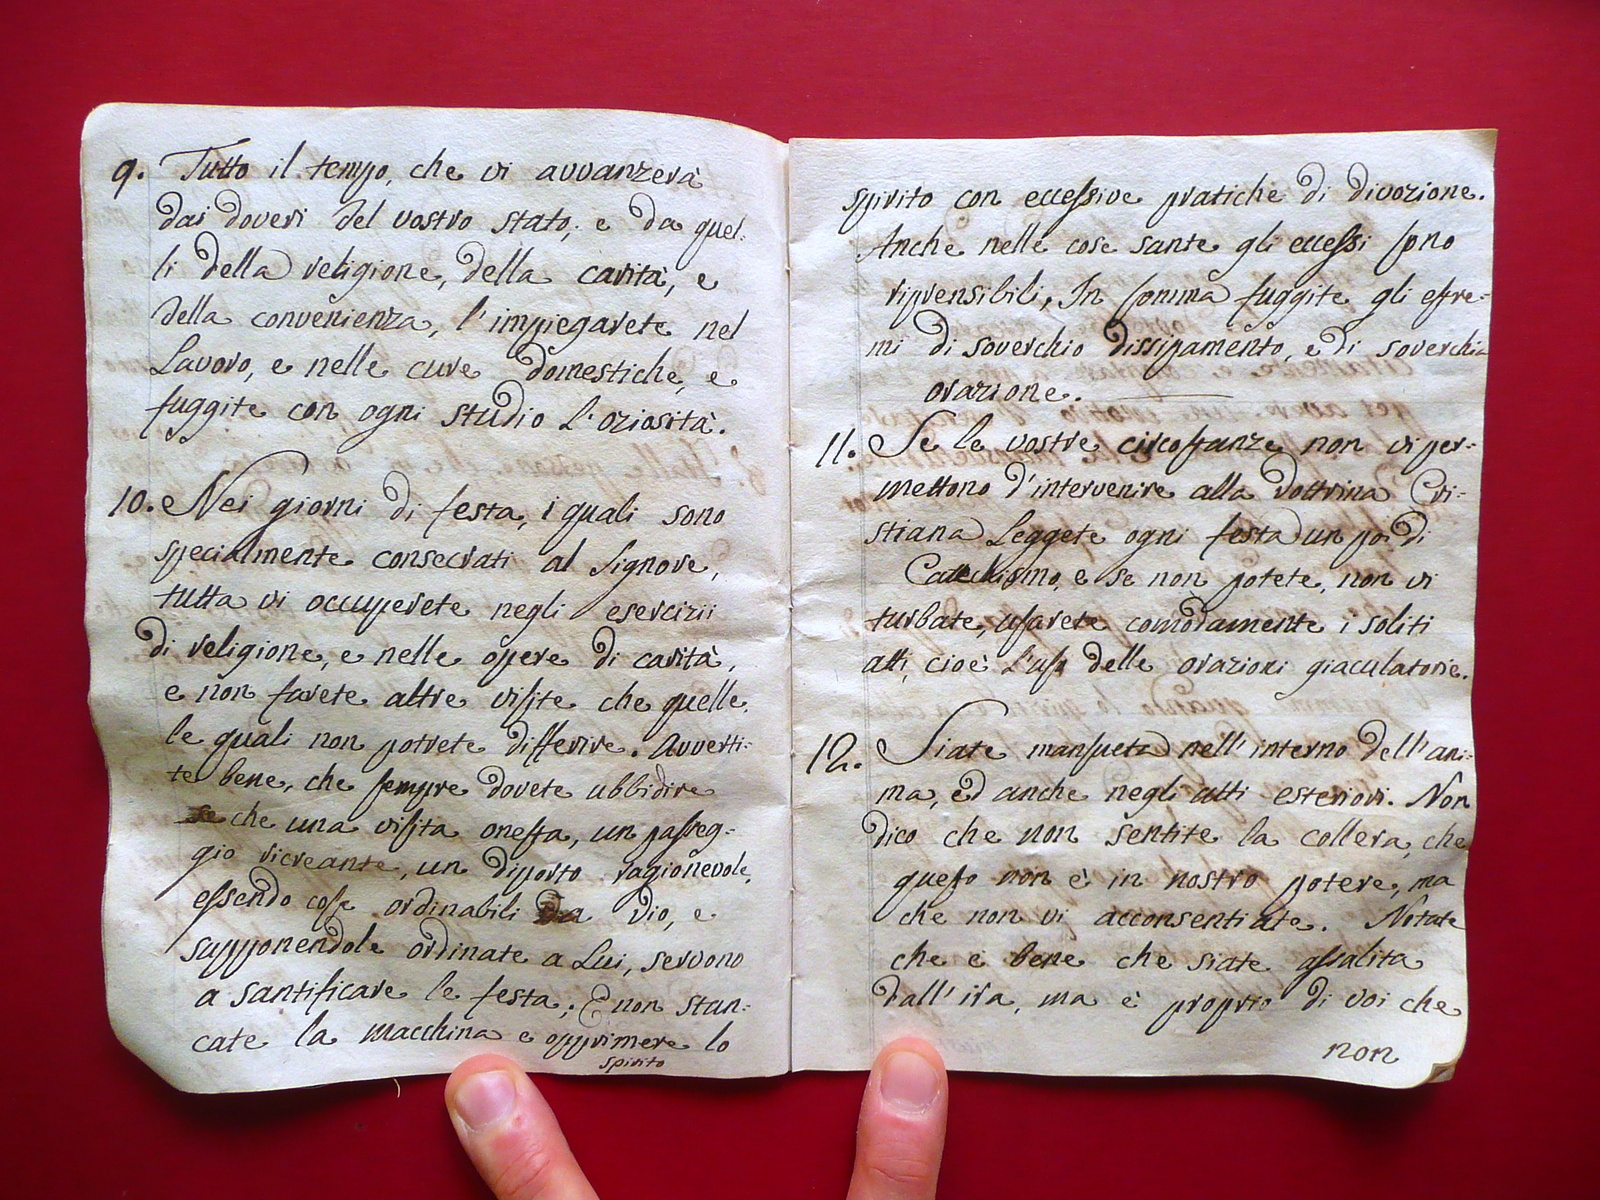 9. Tutto il tempo, che vi avvanzerà
dai doveri del vostro stato, e da quel-
li della religione, della carità, e
della convenienza, l'impiegarete nel
Lavoro, e nelle cure domestiche, e
fuggite con ogni studio l'oziosità.
10. Nei giorni di festa, i quali sono
specialmente consecrati al Signore,
tutta vi occuperete negli esercizii
di religione, e nelle opere di carità,
e non farete altre visite che quelle,
le quali non potrete differire. Avverti-
te bene, che sempre dovete ubbidire
che una visita onesta, un passeg-
gio ricreante, un diporto ragionevole,
essendo cose ordinabili da Dio, e
supponendole ordinate a Lui, servono
a santificare le festa; E non stan-
cate la macchina e opprimere lo
spirito
spirito con eccessive pratiche di divozione.
Anche nelle cose sante gli eccessi sono
riprensibili, In somma fuggite gli estre-
mi di soverchio dissipamento, e di soverchia
orazione.
11. Se le vostre circostanze non vi per-
mettono d'intervenire alla dottrina Cri-
stiana Leggete ogni festa un poi di
Catechismo, e se non potete, non vi
turbate, usarete comodamente i soliti
atti, cioè l'uso delle orazioni giaculatorie.
12. Siate mansueta nell'interno dell'ani-
ma, ed anche negli atti esteriori. Non
dico che non sentite la collera, che
questo non è in nostro potere, ma
che non vi acconsentiate. Notate
che è bene che siate assalita
dall'ira, ma è proprio di voi che
non